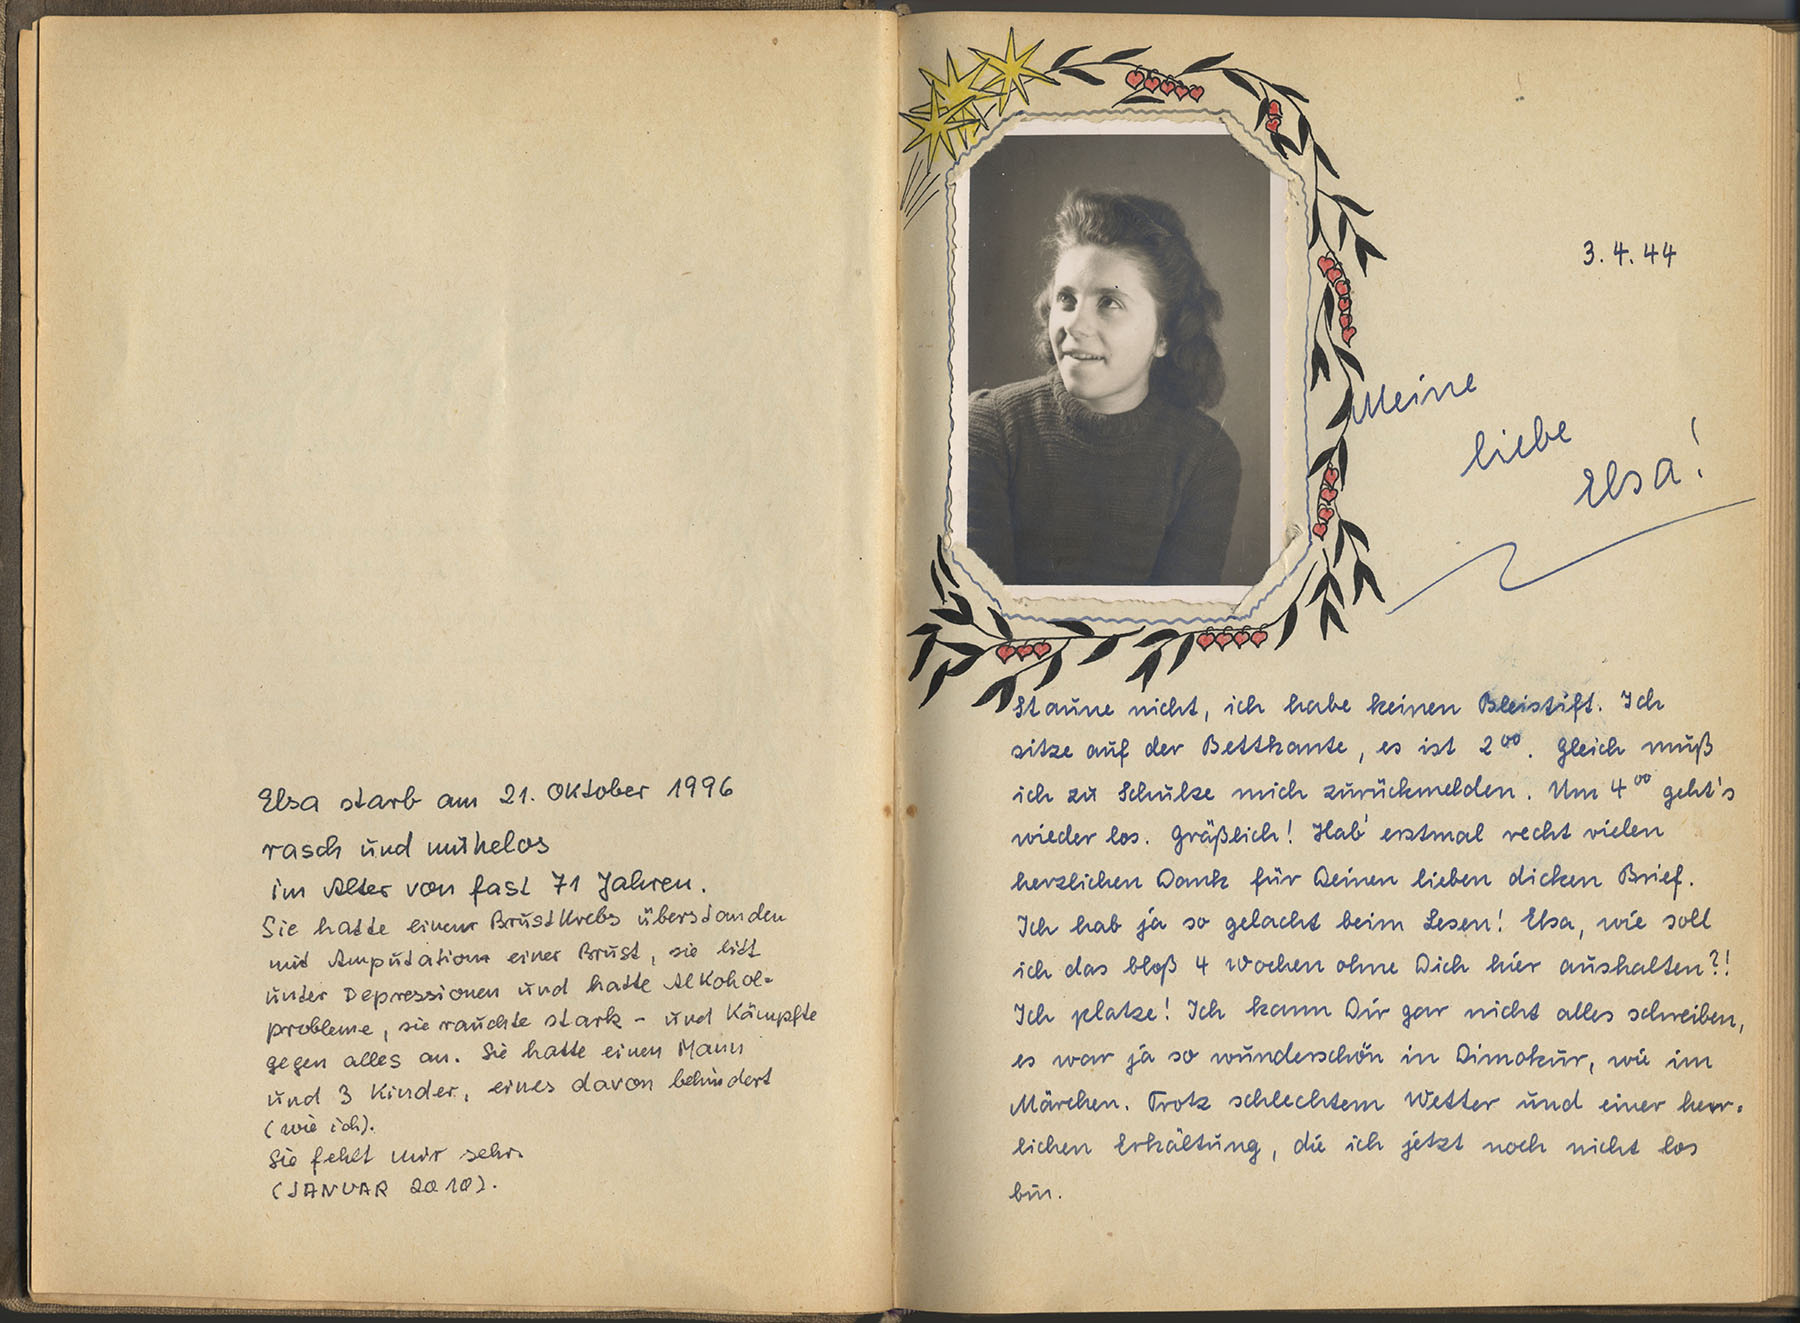 Elsa starb am 21. Oktober 1996
rasch und mühelos
im Alter von fast 71 Jahren.
Sie hatte einen Brustkrebs überstanden
mit Amputation einer Brust, sie litt
unter Depressionen und hatte Alkohol=
probleme, sie rauchte stark – und kämpfte
gegen alles an. Sie hatte einen Mann
und 3 Kinder, eines davon behindert
(wie ich).
Sie fehlt mir sehr.
(JANUAR 2010).
3. 4. 44
Meine
liebe
Elsa!
Staune nicht, ich habe keinen Bleistift. Ich
sitze auf der Bettkante, es ist 2⁰⁰. Gleich muß
ich zu Schulze mich zurückmelden. Um 4⁰⁰ geht's
wieder los. Gräßlich! Hab' erstmal recht vielen
herzlichen Dank für Deinen lieben dicken Brief.
Ich hab ja so gelacht beim Lesen! Elsa, wie soll
ich das bloß 4 Wochen ohne Dich hier aushalten?!
Ich platze! Ich kann Dir gar nicht alles schreiben,
es war ja so wunderschön in Dimokur, wie im
Märchen. Trotz schlechtem Wetter und einer herr=
lichen Erkältung, die ich jetzt noch nicht los
bin.